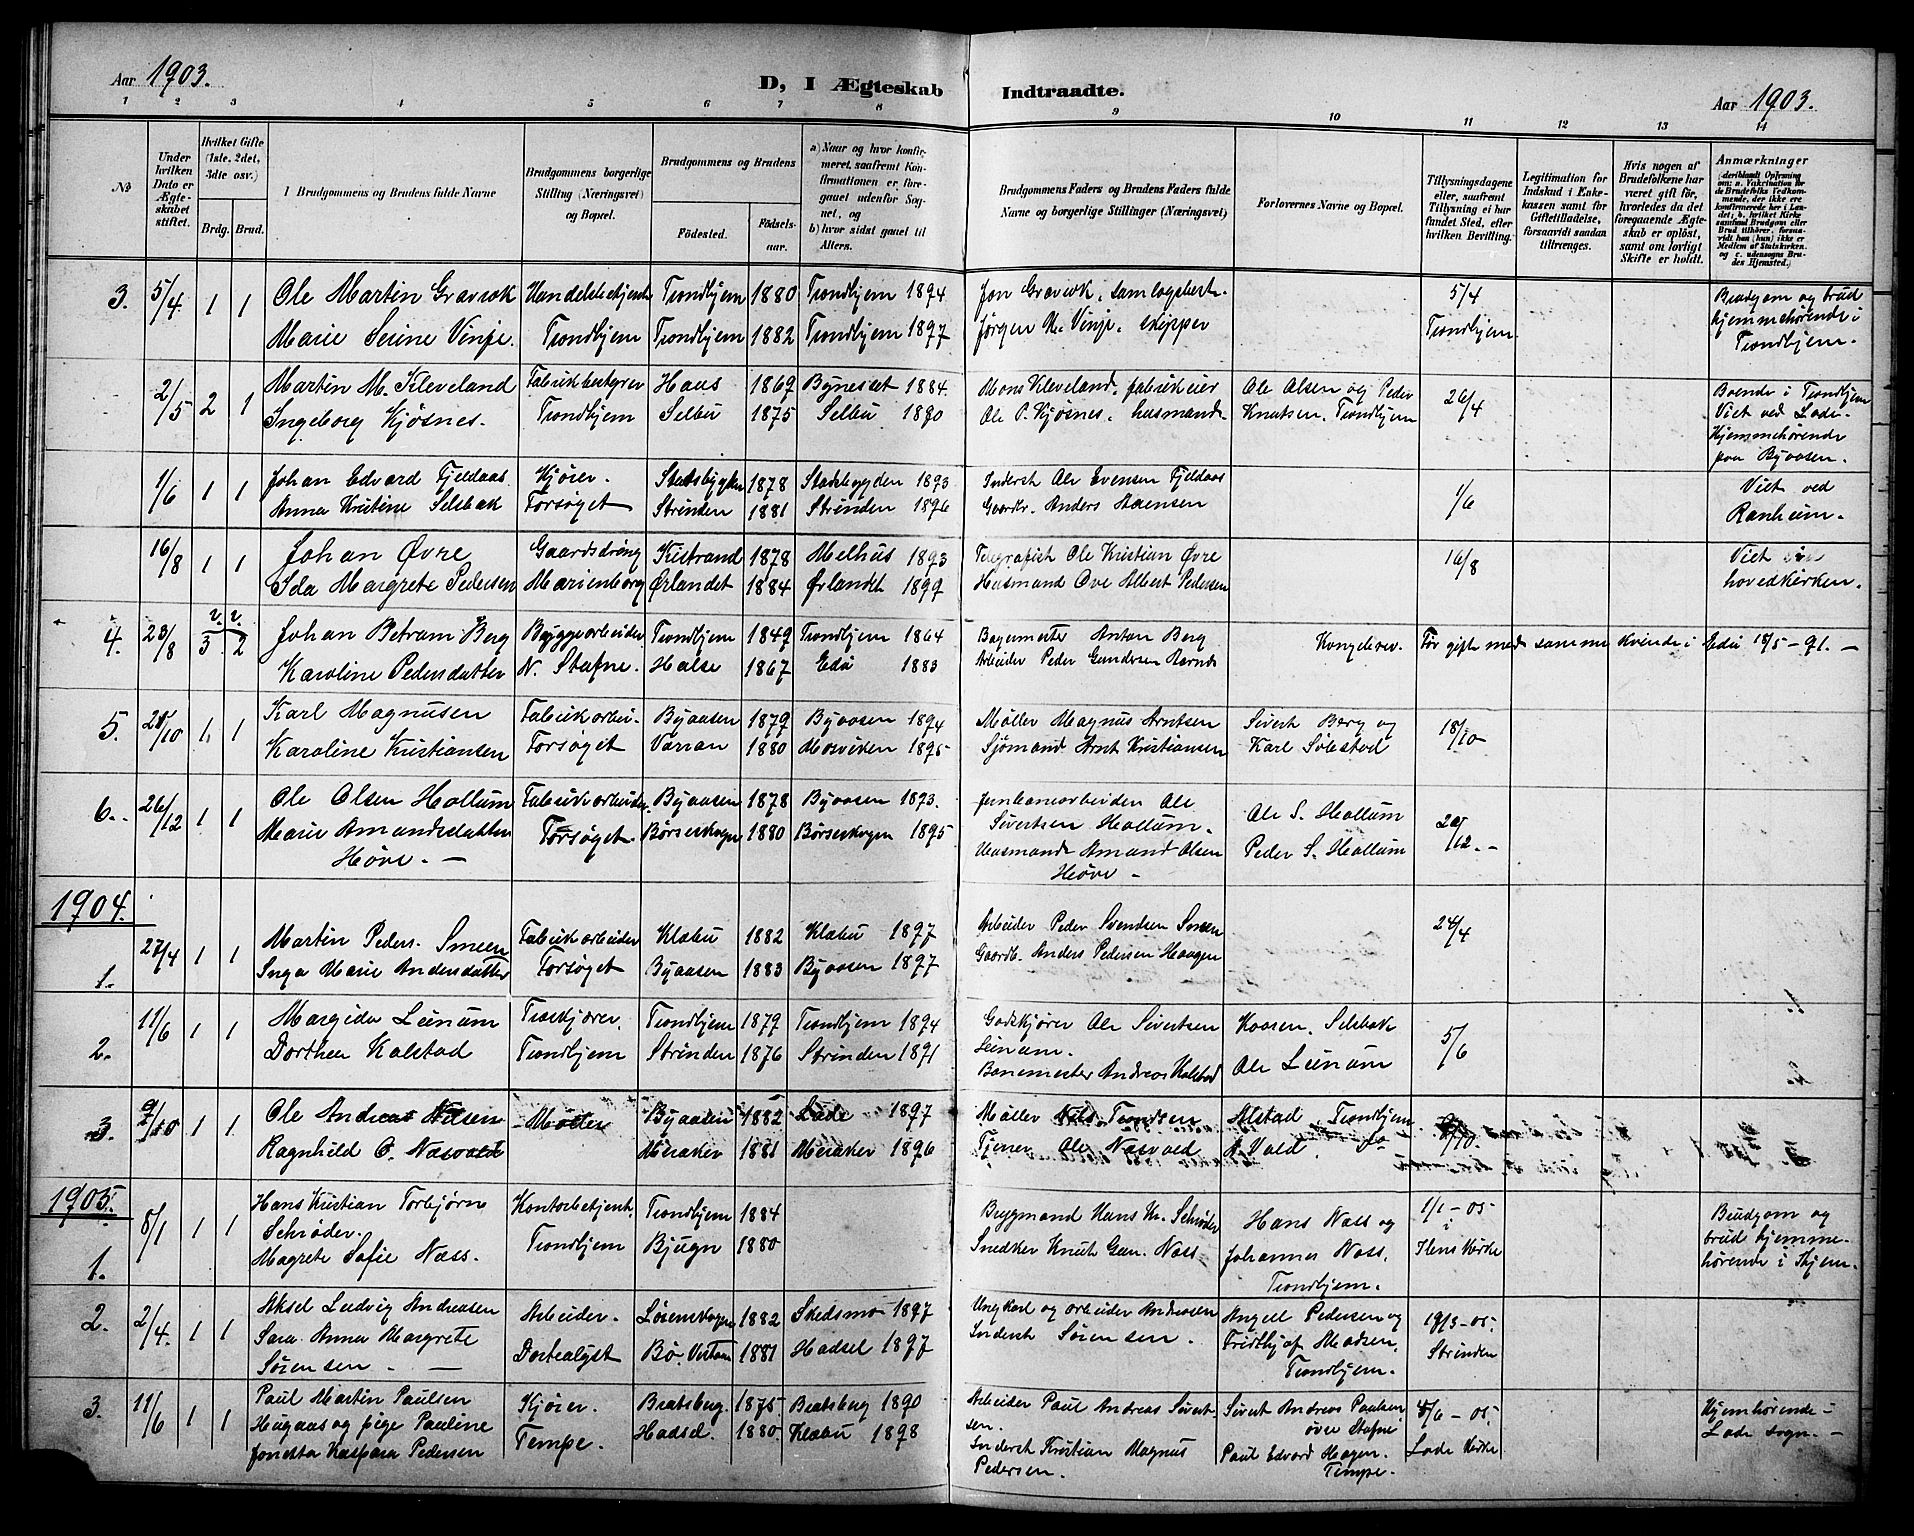 Aar 1903.
D, I Ægteskab Indtraadte.
Aar 1903.
1 2 3 4 5 6 7 8 9 10 11 12 13 14
No
Under hvilken Dato er Ægteskabet stiftet.
Hvilket Gifte (1ste, 2det, 3die osv.)
Brdg. Brud.
Brudgommens og Brudens fulde Navne
Brudgommens borgerlige Stilling (Næringsvei) og Bopæl.
Brudgommens og Brudens
Fødested. Fødselsaar.
a) Naar og hvor konfirmeret, saafremt Konfirmationen er foregaaet udenfor Sognet, og
b) hvor sidst gaaet til Alters.
Brudgommens Faders og Brudens Faders fulde Navne og borgerlige Stillinger (Næringsvei)
Forlovernes Navne og Bopæl.
Tillysningsdagene eller, saafremt Tillysning ei har fundet Sted, efter hvilken Bevilling.
Legitimation for Indskud i Enkekassen samt for Giftetilladelse, forsaavidt saadan tiltrænges.
Hvis nogen af Brudefolkene har været gift før, hvorledes da det foregaaende Ægteskab er opløst, samt om lovligt Skifte er holdt.
Anmærkninger
3. 5/4. 1 1 Ole Martin Gravrok Handelsbetjent Trondhjem 1880 Trondhjem 1894 Jon Gravrok, samlagsbest. 5/4 Brudgom og brud
Marie Serine Vinje. Trondhjem Trondhjem 1882 Trondhjem 1897 Jørgen H. Vinje, skipper Trondhjem hjemmehørende i
Trondhjem.
2/5 2 1 Martin M. Kleveland Fabrikbestyrer Haus 1869 Bynesset 1884 Mons Kleveland, fabrikeier Ole Olsen og Peder 26/4 Boende i Trondhjem
Ingeborg Kjøsnes. Trondhjem Selbu 1875 Selbu 1890 Ole P. Kjøsnes, husmand Knutsen, Trondhjem Viet ved Lade.
Hjemmehørende
paa Byaasen.
1/6 1 1 Johan Edvard Fjeldaas Kjører. Stadsbygden 1878 Stadsbygden 1893 Inderst Ole Evensen Fjeldaas 1/6 Viet ved
Anna Kristine Selsbak Forsøget Strinden 1881 Strinden 1896 Gaardbr. Anders Haensen Ranheim.
16/8 1 1 Johan Øvre Gaardsdreng Kistrand 1878 Melhus 1893 Telegrafist Ole Kristian Øvre 16/8 Viet i
Ida Margrete Pedersen Marienborg Ørlandet 1884 Ørlandet 1899 Husmand Ove Albert Pedersen hovedkirken.
4. 23/8 3 2 Johan Betram Berg Byggearbeider Trondhjem 1849 Trondhjem 1864 Bagermester Anton Berg Kongebrev. Før gift med samme kvinde i Edø 18/5-91.-
Karoline Pedersdatter N. Stafne. Halse 1867 Edø 1883 Arbeider Peder Gundersen
5. 25/10 1. 1 Karl Magnusen Fabrikarbei- Byaasen 1879 Byaasen 1894 Møller Magnus Arntsen Sivert Berg og 18/10
Karoline Kristiansen Forsøget Varran 1880 Mosviken 1895 Sjømand Arnt Kristiansen Karl Solestad
6. 26/12 1 1 Ole Olsen Hollum Fabrikarbeider Byaasen 1878 Byaasen 1893. Jernbanearbeider Ole Ole S. Hollum 20/12.-
Marie Amundsdatter Forsøget. Børseskogn 1880 Børseskogen 1895 Sivertsen Hollum. Peder S. Hollum
Høve.- Husmand Amund Olsen
Høve -
1904.
1. 27/4 1 1 Martin Peders. Smeen Fabrikarbeider Klæbu 1882 Klæbu 1897 Arbeider Peder Svendsen Smeen 24/4
Inga Marie Andersdatter Forsøget Byaasen 1883 Byaasen 1897 Gaardb. Anders Pedersen Haagen
2. 11/6 1 1 Margido Leinum Træskjører. Trondhjem 1879 Trondhjem 1894 Godskjører Ole Sivertsen Haasen. Selsbak 5/6
Dorthea Kalstad Trondhjem Strinden 1876 Strinden 1891 Leinum. Ole Leinum
Banemester Andreas Kalstad
3. 9/10 1 1 Ole Andreas Nilsen Møller Byaasen 1882 Lade 1897 Møller Nils Trondsen Alstad Trondhjem 9/10.
Ragnhild O. Næsvold Meraker 1881 Meraker 1896 Tjener Ole Næsvold Vold do
1905.
1. 8/1 1 1 Hans Kristian Torbjørn Kontorbetjent. Trondhjem 1884 Brygmand Hans K. Schrøder Hans Næss og 1/1-05 Brudgom og
Schrøder. Trondhjem Bjugn 1880 Snedker Knut Gun. Næss Johannes Næss. i brud hjemme-
Magrete Sofie Næss. Trondhjem. Ilens Kirke hørende i Thjem.
2. 2/4. 1 1 Aksel Ludvig Andreasen Arbeider. Lørenskogen 1882 Skedsmo 1897 Ungkarl og arbeider Andreasen Angell Pedersen og 19/3-05.
Sara Anna Margrete Dortealyst Bø. Vesteraa 1881 Hadsel 1897 Inderst Sørensen. Fridthjof Madsen. Strinden
Sørensen.- Trondhjem.
3. 11/6 1 1 Paul Martin Paulsen Kjører. Bratsberg. 1875 Bratsberg 1890 Arbeider Paul Andreas Sivert- Sivert Andreas Paulsen /6-05. Hjemhørende i
Hugaas og pige Pauline Tempe. Hadsel. 1880. Klæbu 1898 sen. øvre Stafne Lade Kirke Lade sogn.-
Jonetta Kaspara Pedersen Inderst Kristian Magnus Paul Edvard Hagen.
Pedersen. Tempe.